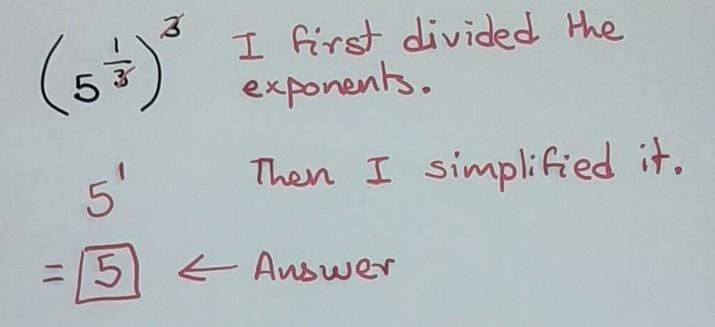 (5^(1/3))^3 I first divided the
exponents.
5^1 Then I simplified it.
= 5 ← Answer